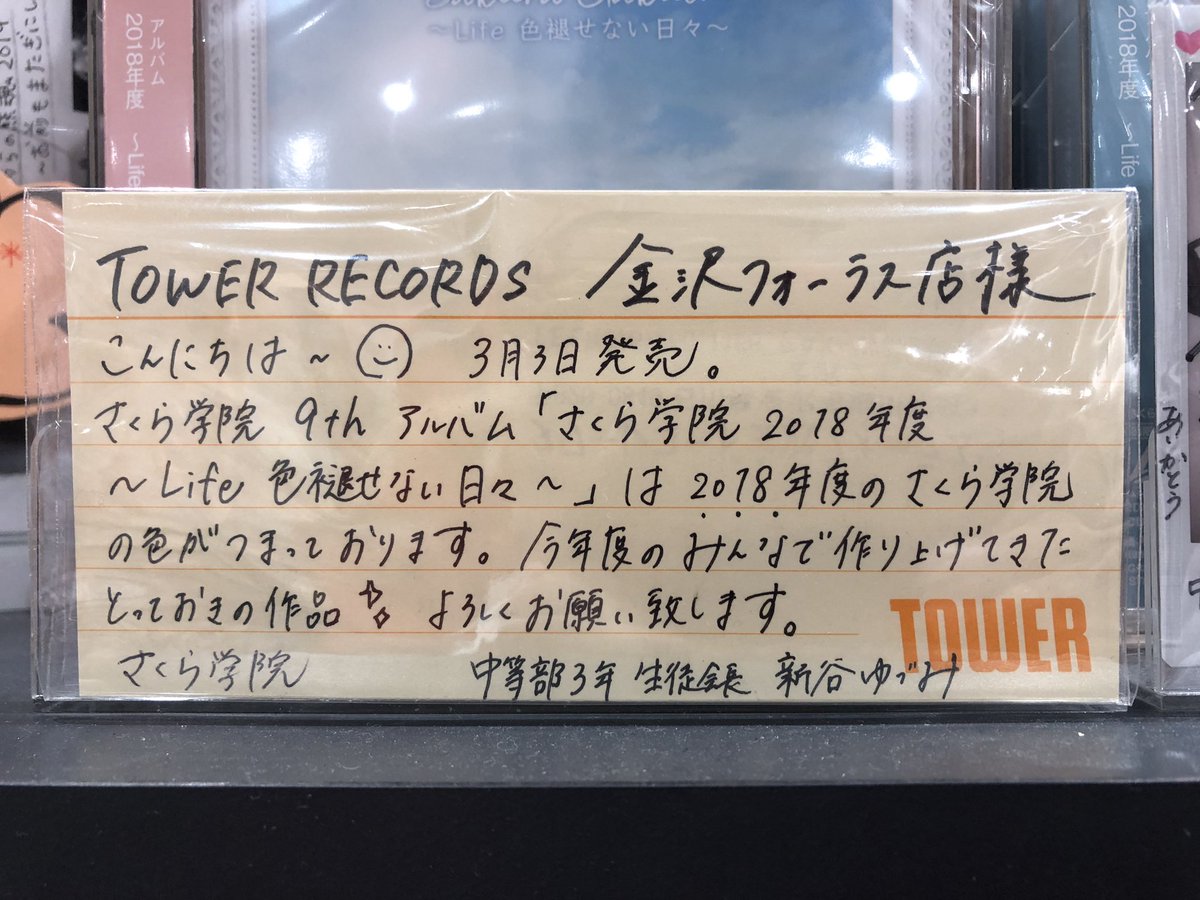 ～Life 色褪せない日々～
アルバム
2018年度 ～Life
2018年度 ～Life
TOWER RECORDS 金沢フォーラス店様
こんにちは～ 3月3日発売。
さくら学院 9th アルバム「さくら学院 2018年度
～Life 色褪せない日々～」は 2018年度のさくら学院
の色がつまっております。今年度のみんなで作り上げてきた
とっておきの作品 よろしくお願い致します。
TOWER
さくら学院 中等部3年 生徒会長 新谷ゆづみ
ありがとう